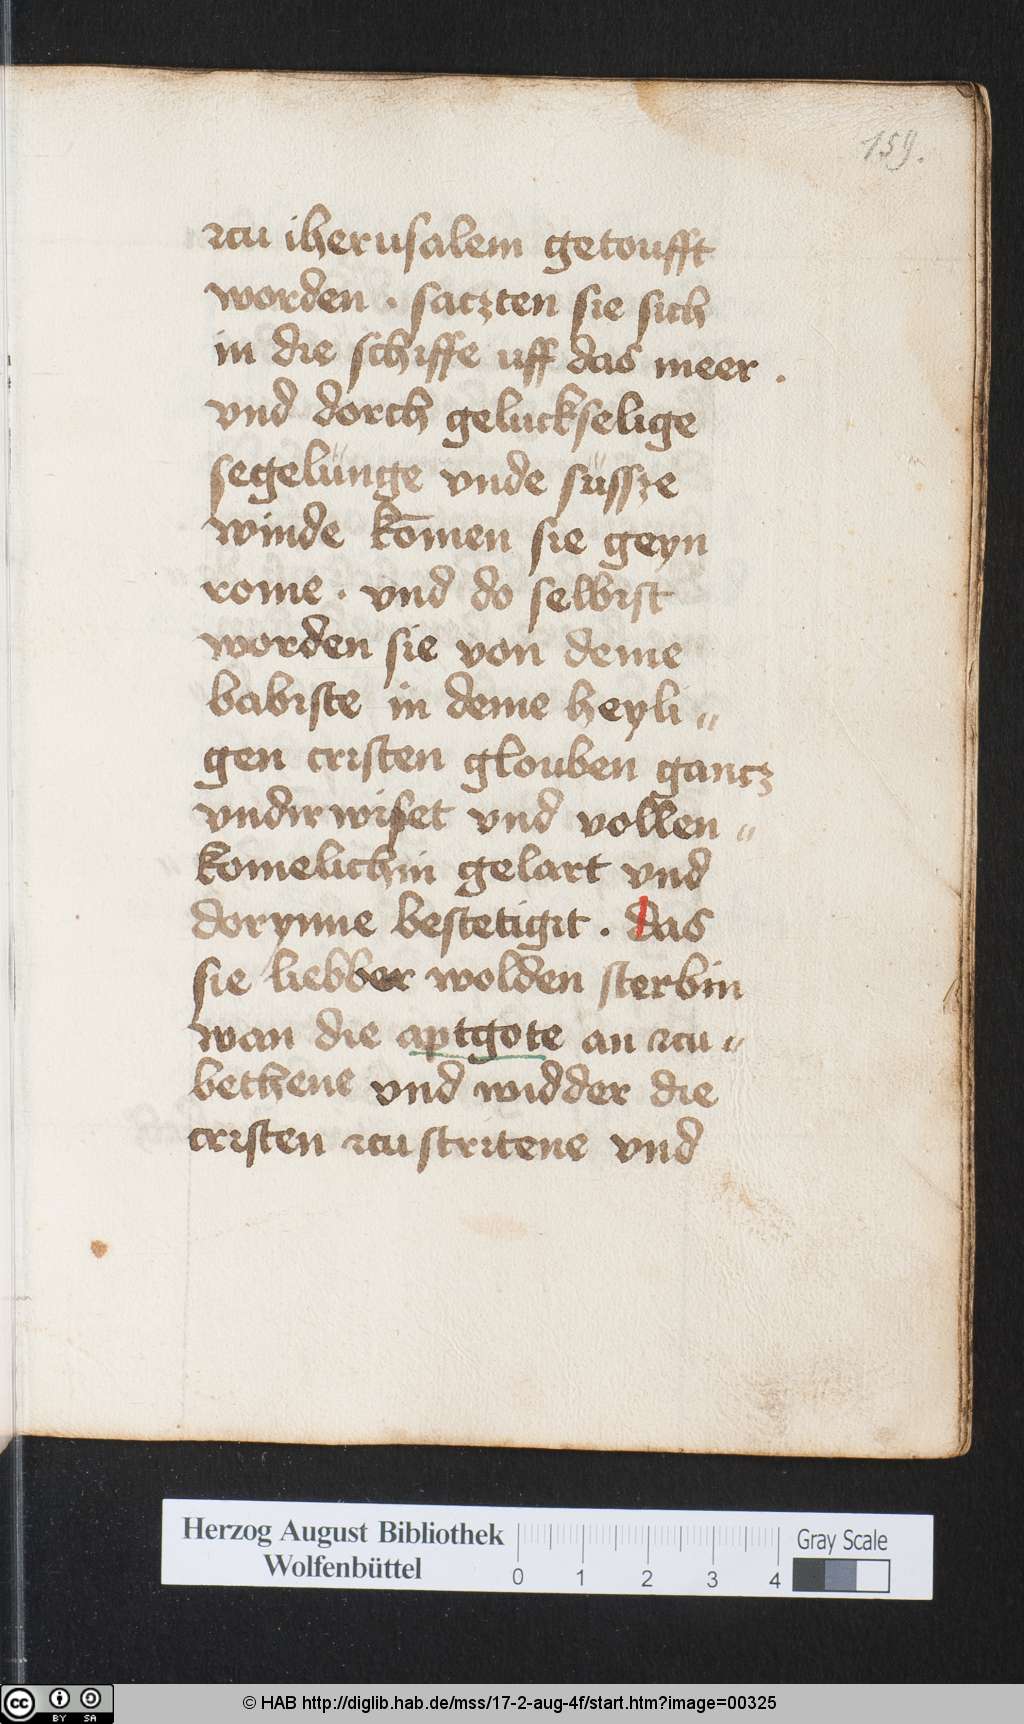 159.
zcu iherusalem getoufft
worden . saczten sie sich
in die schiffe uff das meer .
vnd dorch geluckselige
segelünge vnde süssze
winde kōmen sie geyn
rome . vnd do selbist
worden sie von deme
babiste in deme heyli〃
gen cristen glouben gancz
vndirwiset vnd vollen〃
komelichin gelart vnd
dorynne bestetigit . das
sie liebber wolden sterbin
wan die aptgote an zcu〃
bethene vnd widder die
cristen zcu stritene vnd
Herzog August Bibliothek
Wolfenbüttel
0 1 2 3 4
Gray Scale
cc BY SA
© HAB http://diglib.hab.de/mss/17-2-aug-4f/start.htm?image=00325